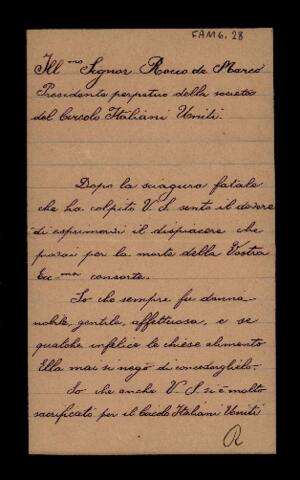 FAM6.28
Ill.mo Signor Rocco de Marco
Presidente perpetuo della società
del Circolo Italiani Uniti.
Dopo la sciagura fatale
che ha colpito V. S. sento il dovere
di esprimervi il dispiacere che
provai per la morte della Vostra
Ecc-ma consorte.
So che sempre fu donna
nobile, gentile, affettuosa, e se
qualche infelice le chiese alimento
Ella mai si negò di concederglielo.-
So che anche V. S. si è molto
sacrificato per il Circolo Italiani Uniti